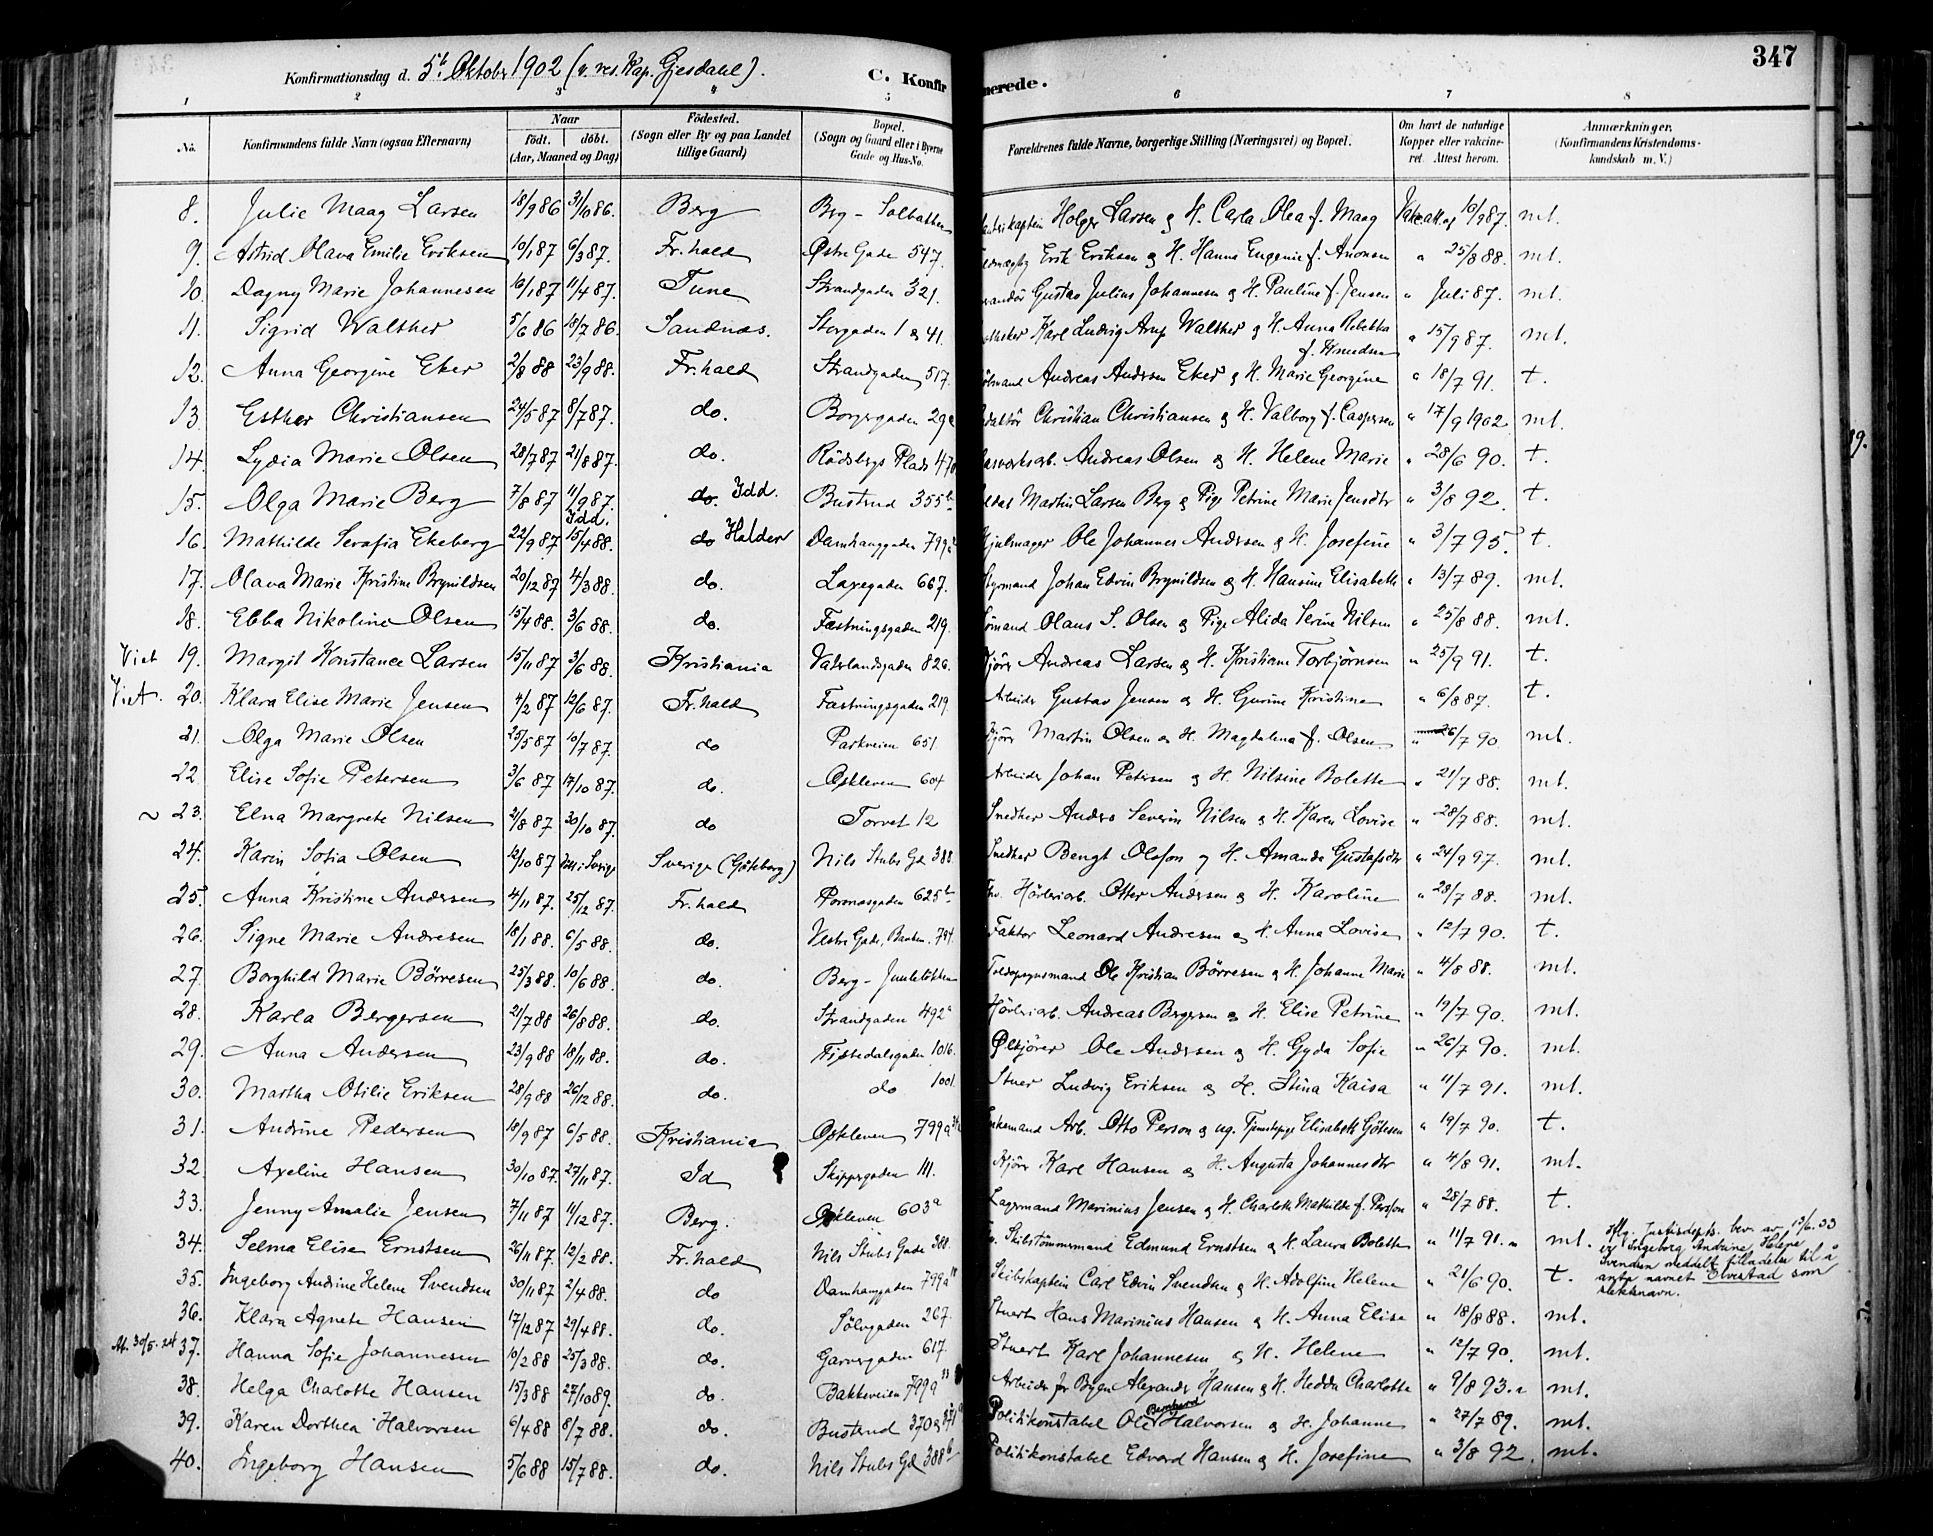 347
Konfirmationsdag d. 5t Oktobr 1902 (v. res. Kap. Gjesdahl). C. Konfirmerede.
1 2 3 4 5 6 7 8
No. Konfirmandens fulde Navn (ogsaa Efternavn) Naar födt. döbt. (Aar, Maaned og Dag) Födested. (Sogn eller By og paa Landet tillige Gaard) Bopæl. (Sogn og Gaard eller i Byerne Gade og Hus-No. Forældrenes fulde Navne, borgerlige Stilling (Næringsvei) og Bopæl. Om havt de naturlige Kopper eller vakcineret. Attest herom. Anmærkninger. (Konfirmandens Kristendomskundskab m. V.)
8. Julie Maag Larsen 18/9 86 31/10 86. Berg Brg - Solbakken Holger Larsen & H. Carla Olea f. Maag 16/9 87. mt.
9. Astrid Olava Emilie Eriksen 10/1 87 6/3 87. Fr.hald Østre Gade 547. Erik Eriksen & H. Hanna Eugenie f. Anonsen " 25/8 88. mt.
10. Dagny Marie Johannesen 16/1 87 11/4 87. Tune Strandgaden 321. Gustav Julius Johannesen & H. Pauline f. Jensen " Juli 87. mt.
11. Sigrid Walther 5/6 86 18/7 86. Sandnæs. Storgaden 1 & 41. Karl Ludvig Arup Walther & H. Anna Rebekka f. Knudsen " 15/9 87. mt.
12. Anna Georgine Eker 2/8 88 23/9 88. Fr.hald Strandgaden 517. Andreas Andersen Eker & H. Marie Georgine " 18/7 91. t.
13. Esther Christiansen 24/5 87 8/7 87. do. Borgergaden 29a Christian Christiansen & H. Valborg f. Caspersen " 17/9 1902 mt.
14. Lydia Marie Olsen 28/7 87 21/8 87. do. Rödsbergs Plads 470 Andreas Olsen & H. Helene Marie " 28/6 90. t.
15. Olga Marie Berg 7/8 87 11/9 87. Idd. do. Idd. Bustrud 355b Martin Larsen Berg & Pige Petrine Marie Jensdtr " 3/8 92. t.
16. Mathilde Serafia Ekeberg 22/9 87 15/4 88. do Halden Damhauggaden 799a Hjulmager Ole Johannes Andersen & H. Josefine " 3/7 95. t.
17. Olava Marie Kristine Brynildsen 20/12 87 4/3 88. do. Laxegaden 667. Styrmand Johan Edvin Brynildsen & H. Hansine Elisabeth " 13/7 89. mt.
18. Ebba Nikoline Olsen 15/4 88. 3/6 88. do. Fæstningsgaden 219. Sömand Olaus S. Olsen & Pige Alida Serine Nilsen " 25/8 88. mt.
Viet 19. Margit Konstance Larsen 15/11 87 3/6 88. Kristiania Vaterlandsgaden 826. Kjörer Andreas Larsen & H. Kristiane Torbjørnsen " 25/9 91. t.
Viet. 20. Klara Elise Marie Jensen 4/2 87 12/6 87. Fr.hald Fæstningsgaden 219. Arbeider Gustav Jensen & H. Gurine Kristine " 6/8 87. t.
21. Olga Marie Olsen 25/5 87 10/7 87. do Parkveien 651. Kjörer Martin Olsen & H. Magdalena f. Olsen " 26/7 90 mt.
22 Elise Sofie Petersen 3/6 87 17/10 87. do. Oskleven 604 Arbeider Johan Petersen & H. Nilsine Bolette " 21/7 88. mt.
~ 23. Elna Margrete Nilsen 21/8 87 30/10 87. do Torvet 12 Snedker Anders Severin Nilsen & H. Karen Lovise " 28/7 88. mt.
24. Karin Sofia Olsen 12/10 87 i Sverige Sverige (Göteborg) Nils Stubs Gd. 388. Snedker Bengt Olofson & H. Amanda Gustafsdtr " 24/9 97. mt.
25. Anna Kristine Andersen 4/11 87. 25/12 87. Fr.hald Poronasgaden 625b Otter Andersen & H. Karoline " 28/7 88. mt.
26. Signe Marie Andresen 18/1 88. 6/5 88. do. Vestre Gade, Banken. 794. Faktor Leonard Andresen & H. Anna Lovise " 12/7 90. t.
27. Borghild Marie Börresen 25/3 88. 10/6 88. do. Berg - Ole Kristian Börresen & H. Johanne Marie " 4/8 88. mt.
28. Karla Bergersen 21/7 88 26/8 88. do. Strandgaden 492a Andreas Bergersen & H. Elise Petrine " 19/7 90. mt.
29. Anna Andersen 23/9 88 18/11 88. do. Tistedalsgaden 1016. Ølkjörer Ole Andersen & H. Gyda Sofie " 26/7 90. mt.
30. Martha Otilie Eriksen 28/9 88 26/12 88. do. do 1001. Stuer Ludvig Eriksen & H. Stina Kaisa " 11/7 91. mt.
31. Andrine Pedersen 18/9 87 6/5 88. Kristiania Oskleven 799a Enkemand Arb. Otto Person & ug. Tjenstepige Elisabeth Götesen " 19/7 90. t.
32 Axeline Hansen 30/10 87. 27/11 87. Id Skippergaden 111. Kjörer Karl Hansen & H. Augusta Johannesdtr " 4/8 91. mt.
33. Jenny Amalie Jensen 7/11 87 11/12 87. Berg. Oskleven 603a Lagermand Marinius Jensen & H. Charlotte Mathilde f. Persson " 28/7 88. t.
34. Selma Elise Ernstsen 26/11 87. 12/2 88. Fr.hald Nils Stubs Gade 388. Skibstömmermand Edmund Ernstsen & H. Laura Bolette " 11/7 91. mt.
35. Ingeborg Andrine Helene Svendsen 30/11 87 2/4 88. do Damhauggaden 799a Skibskaptein Carl Edvin Svendsen & H. Adolfine Helene " 21/6 90. t. iflg. Justisdepts. bev. av 13/6. 33 er Ingeborg Andrine Helene Svendsen meddelt tilladelse til å anta navnet Elvestad som slektsnavn.
36. Klara Agnete Hansen 17/12 87 29/4 88. do. Sölvgaden 267. Stuert Hans Marinius Hansen & H. Anna Elise " 18/8 88. mt.
At. 30/5. 24 37. Hanna Sofie Johannesen 10/2 88 25/3 88. do. Garvergaden 617. Stuert Karl Johannesen & H. Helene " 12/7 90. mt.
38. Helga Charlotte Hansen 15/3 88 27/10 89. do. Bakkeveien 799a Alexander Hansen & H. Hedda Charlotte " 9/8 93. mt.
39. Karen Dorthea Halvorsen 6/4 88 8/7 88. do. Bustrud 370 & 371 Politikonstabel Ole Bernhard Halvorsen & H. Johanne " 27/7 89. mt.
40. Ingeborg Hansen 5/6 88 15/7 88. do. Nils Stubs Gd. 388b Politikonstabel Edvard Hansen & H. Josefine " 3/8 92. mt.